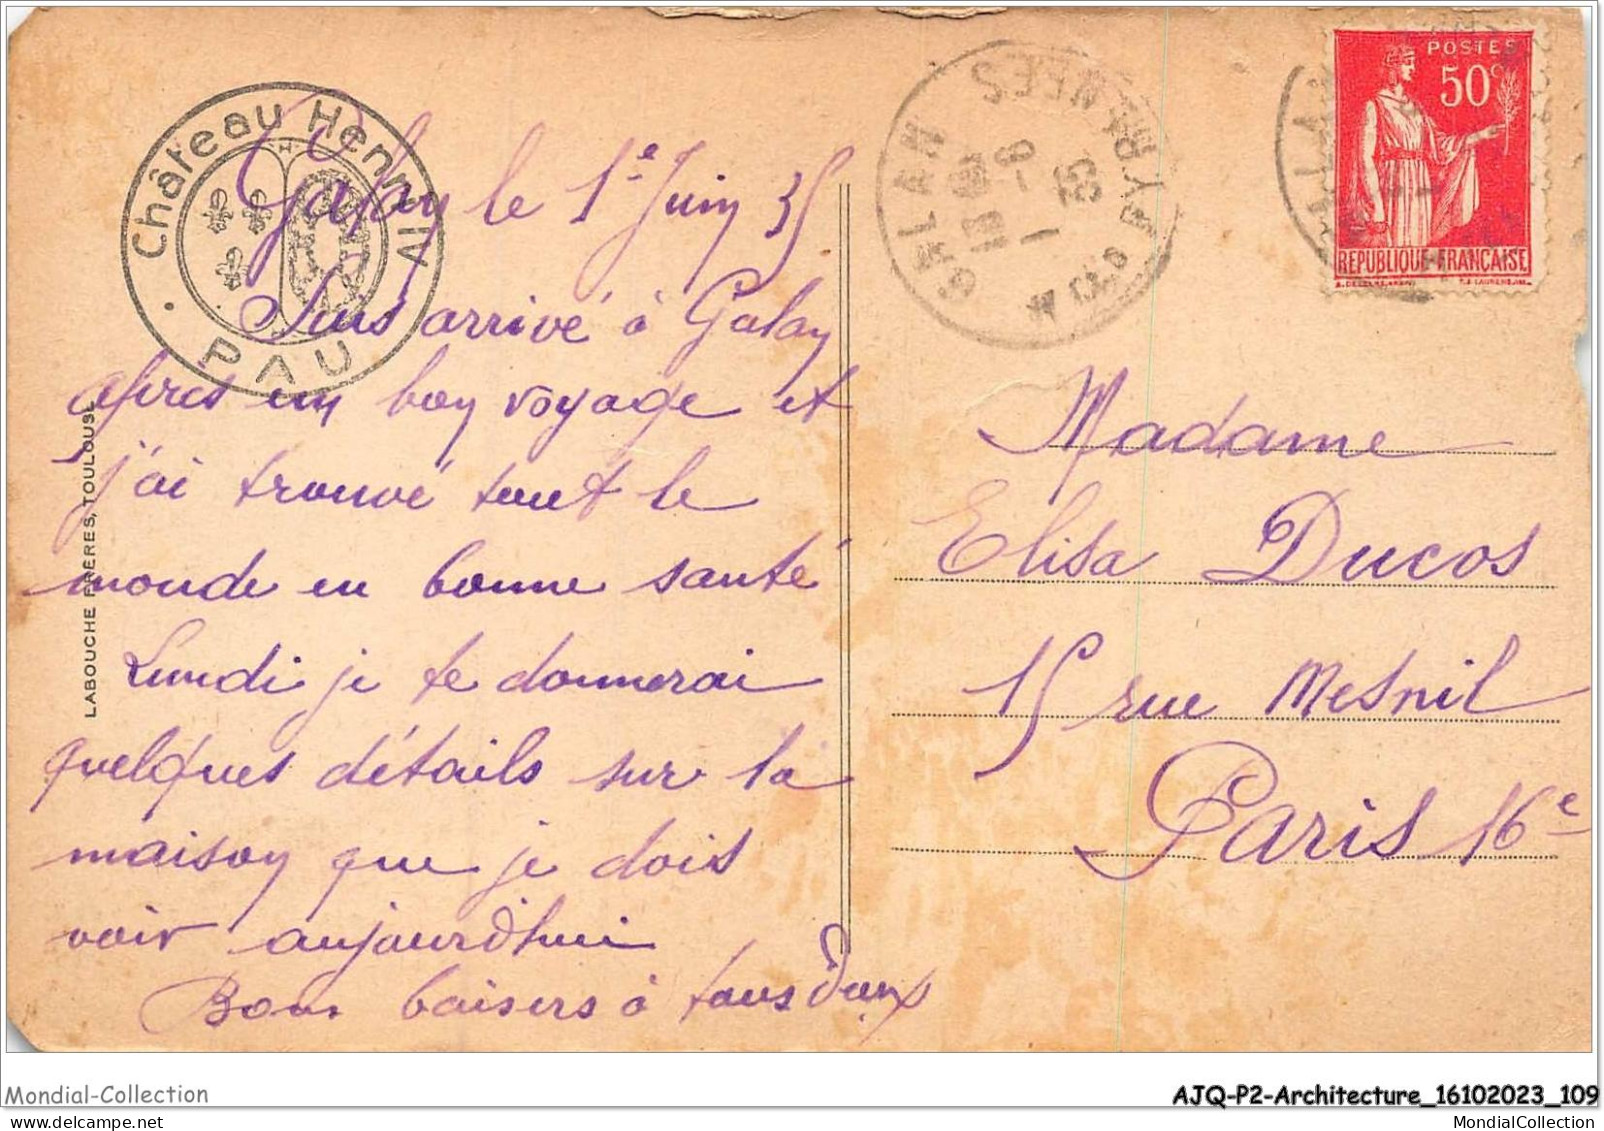 Château Henri IV
PAU
Galan le 1e Juin 35
Suis arrivé à Galan
après un bon voyage et
j'ai trouvé tout le
monde en bonne santé
Lundi je te donnerai
quelques détails sur la
maison que je dois
voir aujourd'hui
Bons baisers à tous deux
LABOUCHE FRÈRES, TOULOUSE
GALAN
1 -6
35
PYRENEES
POSTES
50c
REPUBLIQUE FRANÇAISE
Madame
Elisa Ducos
15 rue Mesnil
Paris 16e
Mondial-Collection
AJQ-P2-Architecture_16102023_109
MondialCollection